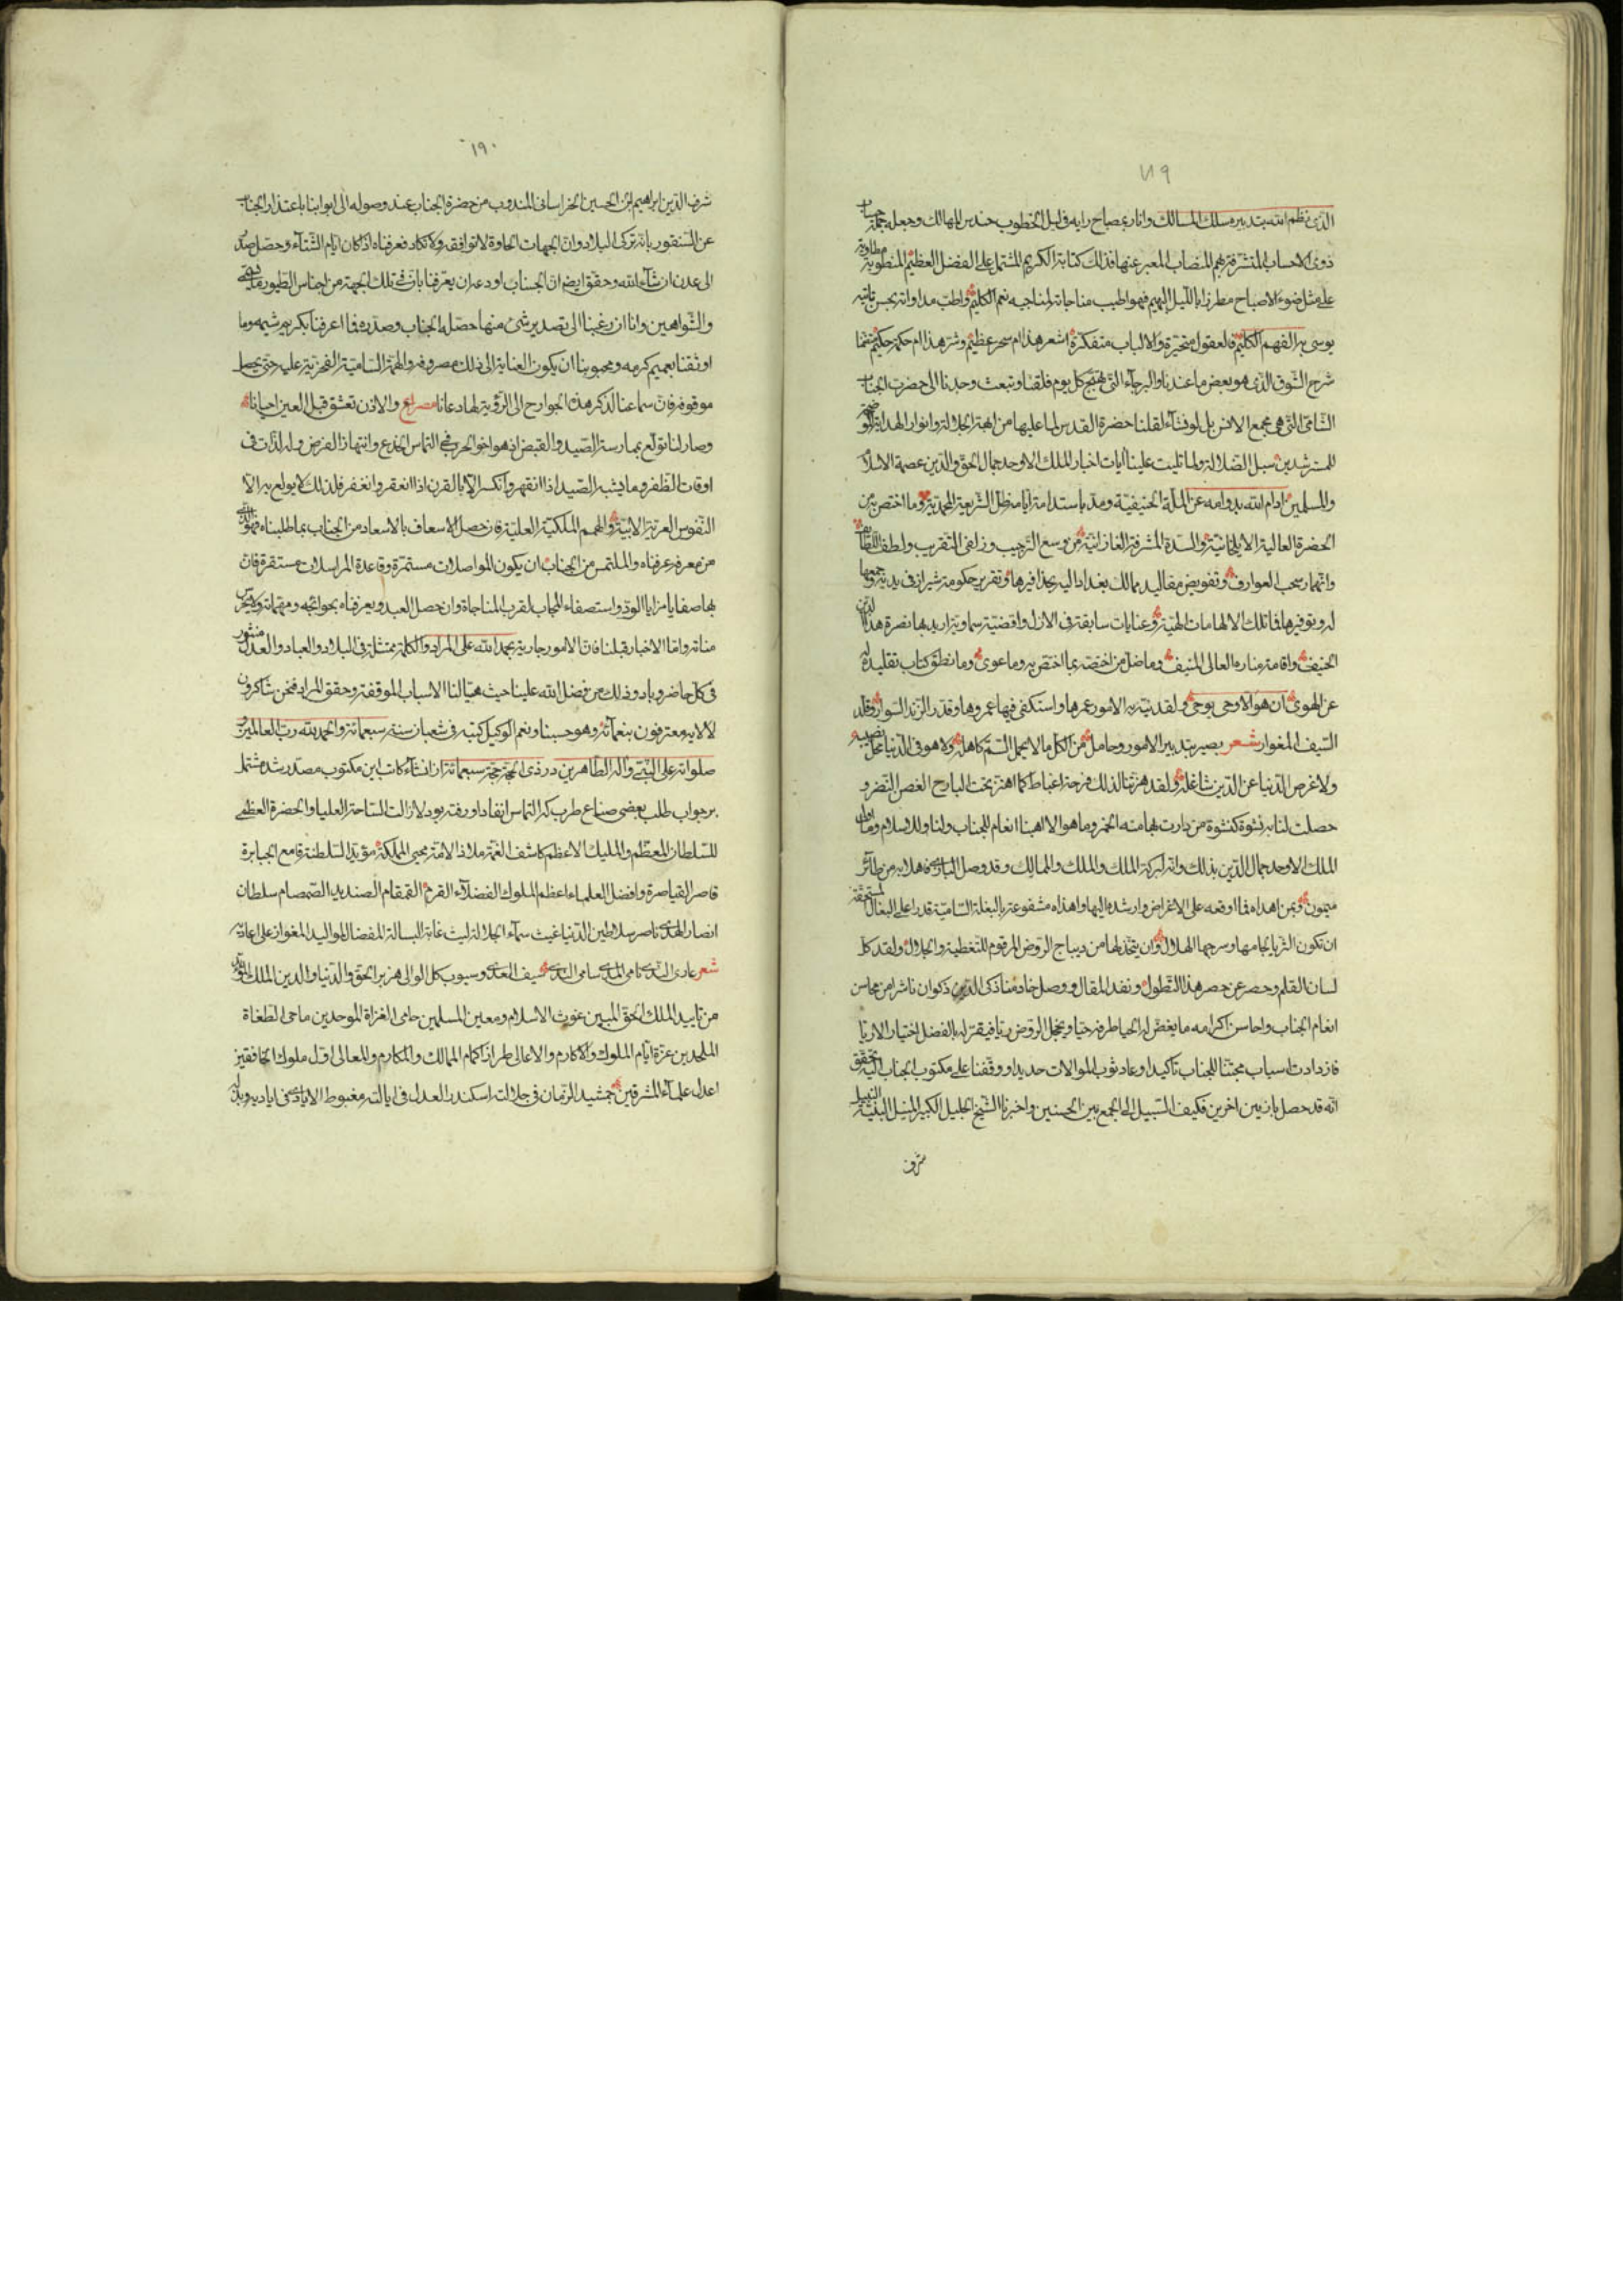 ١٨٩
الذی نظم الله بتدبیره مسلک المسالک وانار بمصباح رایه فی لیل الخطوب حندس المهالک وجعله جملة حسنات
ذوی الاحساب المتشرفة بهم المناصب المعبر عنها فذلک کتابة الکریم المشتمل علی الفضل العظیم المنطویة مطاویه
علی مثل ضوء الاصباح مطرزا بالليل البهیم فهو اطیب مناجاة لمناجیه نعم الکلیم واطب مداواة یحس تاتیه
یوسی به الفهم الکلیم فالعقول متحیرة والالباب متفکرة اشعر هذا ام سحر عظیم ونثر هذا ام حکمة حکیم
شرح الشوق الذی هو بعض ما عندنا والبرحاء التی تهیج کل یوم قلقنا وتبعث وجدنا الی حضرت الجناب
السامی التی هی مجمع الانس بل لو نشاء لقلنا حضرة القدس لما علیها من ابهة الجلالة وانوار الهدایة
للمسترشدین سبل الضلالة ولما تلیت علینا ایات اخبار الملک الاوحد جمال الحق والدین عصمة الاسلام
والمسلمین ادام الله بدوامه عن الملة الحنیفیة ومد باستدامة ایامه ظل الشریعة المحمدیة وما اختص به من
الحضرة العالیة الایلخانیة والسدة المشرفة الغازانیة من وسع الترحیب وزلفی التقریب ولطف اللطائف
وانهمار سحب العوارف وتفویض مقالید ممالک بغداد الیه بحذافیرها وتقریر حکومة شیراز فی یدیه وجمعها
له وتوفیرها فاتلک الا الهامات الهیة وعنایات سابقة فی الازل واقضیة سماویة ارید بها نصرة هذا الدین
الحنیف واقامة مناره العالی المنیف وما ضل من اختصه بما اختص به وما غوی وما نطق کتاب تقلیده له
عن الهوی ان هو الا وحی یوحی ولقد نبه به الامور عمرها واستکفی فیها عمروها وقدر الزند السوار وقلد
السیف المغوار شعر بصیر بتدبیر الامور وحامل من الکل ما لا یحمل الشم کاهله ولا هو فی الدنیا مخل نصیبه
ولا غرض الدنیا عن الدین شاغله ولقد هزتنا لذلک فرحة اغتباط کما اهتز تحت البارح الغصن النضر و
حصلت لنا به نشوة کنشوة من دارت بهامته الخمر وما هو الا الهنا انعام للجناب ولنا ولل‍اسلام
الملک الاوحد جمال الدین بذلک وانه لبرکة الملک والملک والممالک وقد وصل البازی فاهلا به من طائر
میمون وبمن اهداه فما اوقعه علی الاغراض وارشده الیها واهداه مشفوعة بالبغلة السامیة قدرا علی البغال المستحقة
ان تکون الثریا لجامها وسرجها الهلال وان یتخذ لها من دیباج الروض المرقوم للتغطیة والجلال ولقد کل
لسان القلم وحصر عن حصر هذا التطول ونفد المقال ووصل خادمنا ذکی الدین ذکوان ناشرا من محاسن
انعام الجناب واحاسن اکرامه ما یغض له الحیا طرفه حیا ویخجل الروض ریا فیقر له بالفضل اختیارا لا ریا
فازدادت اسباب محبتنا للجناب تاکیدا وعاد ثوب الموالات جدیدا ووقفنا علی مکتوب الجناب
انه قد حصل بازیین اخرین فکیف السبیل الی الجمع بین الحسنین واخبرنا الشیخ الجلیل الکبیر
شرف
١٩٠
شرف الدین ابراهیم ابن الحسین الخراسانی المندوب من حضرة الجناب عند وصوله الی ابوابنا باعتذار الجناب
عن السنقور بانه ترکی البلاد وان الجهات الحارة لا توافقه ولا تکاد فعرفناه اذا کان ایام الشتاء وحصل
الی عدن ان شاء الله وحقق ایضا ان الجناب اودعه ان یعرفنا بان فی تلک الجهة من اجناس الطیور
والشواهین وانا ان رغبنا الی تصدیر شیء منها حصله الجناب وصدره فما اعرفنا بکریم شیمه وما
اوثقنا بعمیم کرمه ومحبوبنا ان یکون العنایة الی ذلک مصروفة والهمة السامیة الفخریة علیه حتی یحصل
موقوفة فان سماعنا لذکر هذه الجوارح الی الرؤیة لها دعانا مصراع والاذن تعشق قبل العین احیانا
وصار لنا تولع بممارسة الصید والقبض اذ هو اخو الحرب فی التماس الخدع وانتهاز الفرص وله لذات فی
اوقات الظفر وما یشبه الصید اذا انقهر وانکسر الا بالقرن اذا انعقر وانعفر فلذلک لا یولع به الا
النفوس العزیزة الابیة والهمم الملکیة العلیة فان حصل الاسعاف بالاسعاد من الجناب بما طلبناه
من معرفة عرفناه والملتمس من الجناب ان یکون المواصلات مستمرة وقاعدة المراسلات مستقرة فان
بها صفایا مزایا الود واستصفاء الحجاب لقرب المناجاة وان حصل العبد ویعرفناه بحوائجه ومهماته
مناته واما الاخبار قبلنا فان الامور جاریة بحمد الله علی المراد والکلمة ممتثلة فی البلاد والعباد والعدل منشور
فی کل حاضر وباد وذلک من فضل الله علینا حیث هیا لنا الاسباب الموقفة وحقق المراد فنحن شاکرون
لالایه معترفون بنعمائه وهو حسبنا ونعم الوکیل کتبه فی شعبان سنة سبعمائة والحمد لله رب العالمین
صلواته علی النبی واله الطاهرین در ذی الحجة حجة سبعمائة از انشاء کاتب این مکتوب مصدر شد مشتمل
بر جواب طلب بعضی صناع طرب که التماس انفاد او رفته بود لا زالت الساحة العلیا والحضرة العظمی
للسلطان المعظم والملیک الاعظم کاشف الغمة ملاذ الامة محیی المملکة مؤید السلطنة قامع الجبابرة
قاصر القیاصرة وافضل العلماء اعظم الملوک الفضلاء القرم القمقام الصندید الصمصام سلطان
انصار الهدی ناصر سلاطین الدنیا غیث سماء الجلالة لیث غابة البسالة المفضال
شعر عاری الندی نامی المدی سامی الندی سیف العدی وسیوب کل الوالی هزبر الحق والدنیا والدین الملک
من تایید الملک الحق المبین غوث الاسلام ومعین المسلمین حامی الغزاة الموحدین ماحی الطغاة
الملحدین عزة ایام الملوک والاکارم والاعالی طراز اکمام الممالک والمکارم والمعالی اول ملوک الخافقین
اعدل علماء المشرقین جمشید الزمان فی جلالته اسکندر العدل فی ایالته مغبوط الایادی فی ایادیه